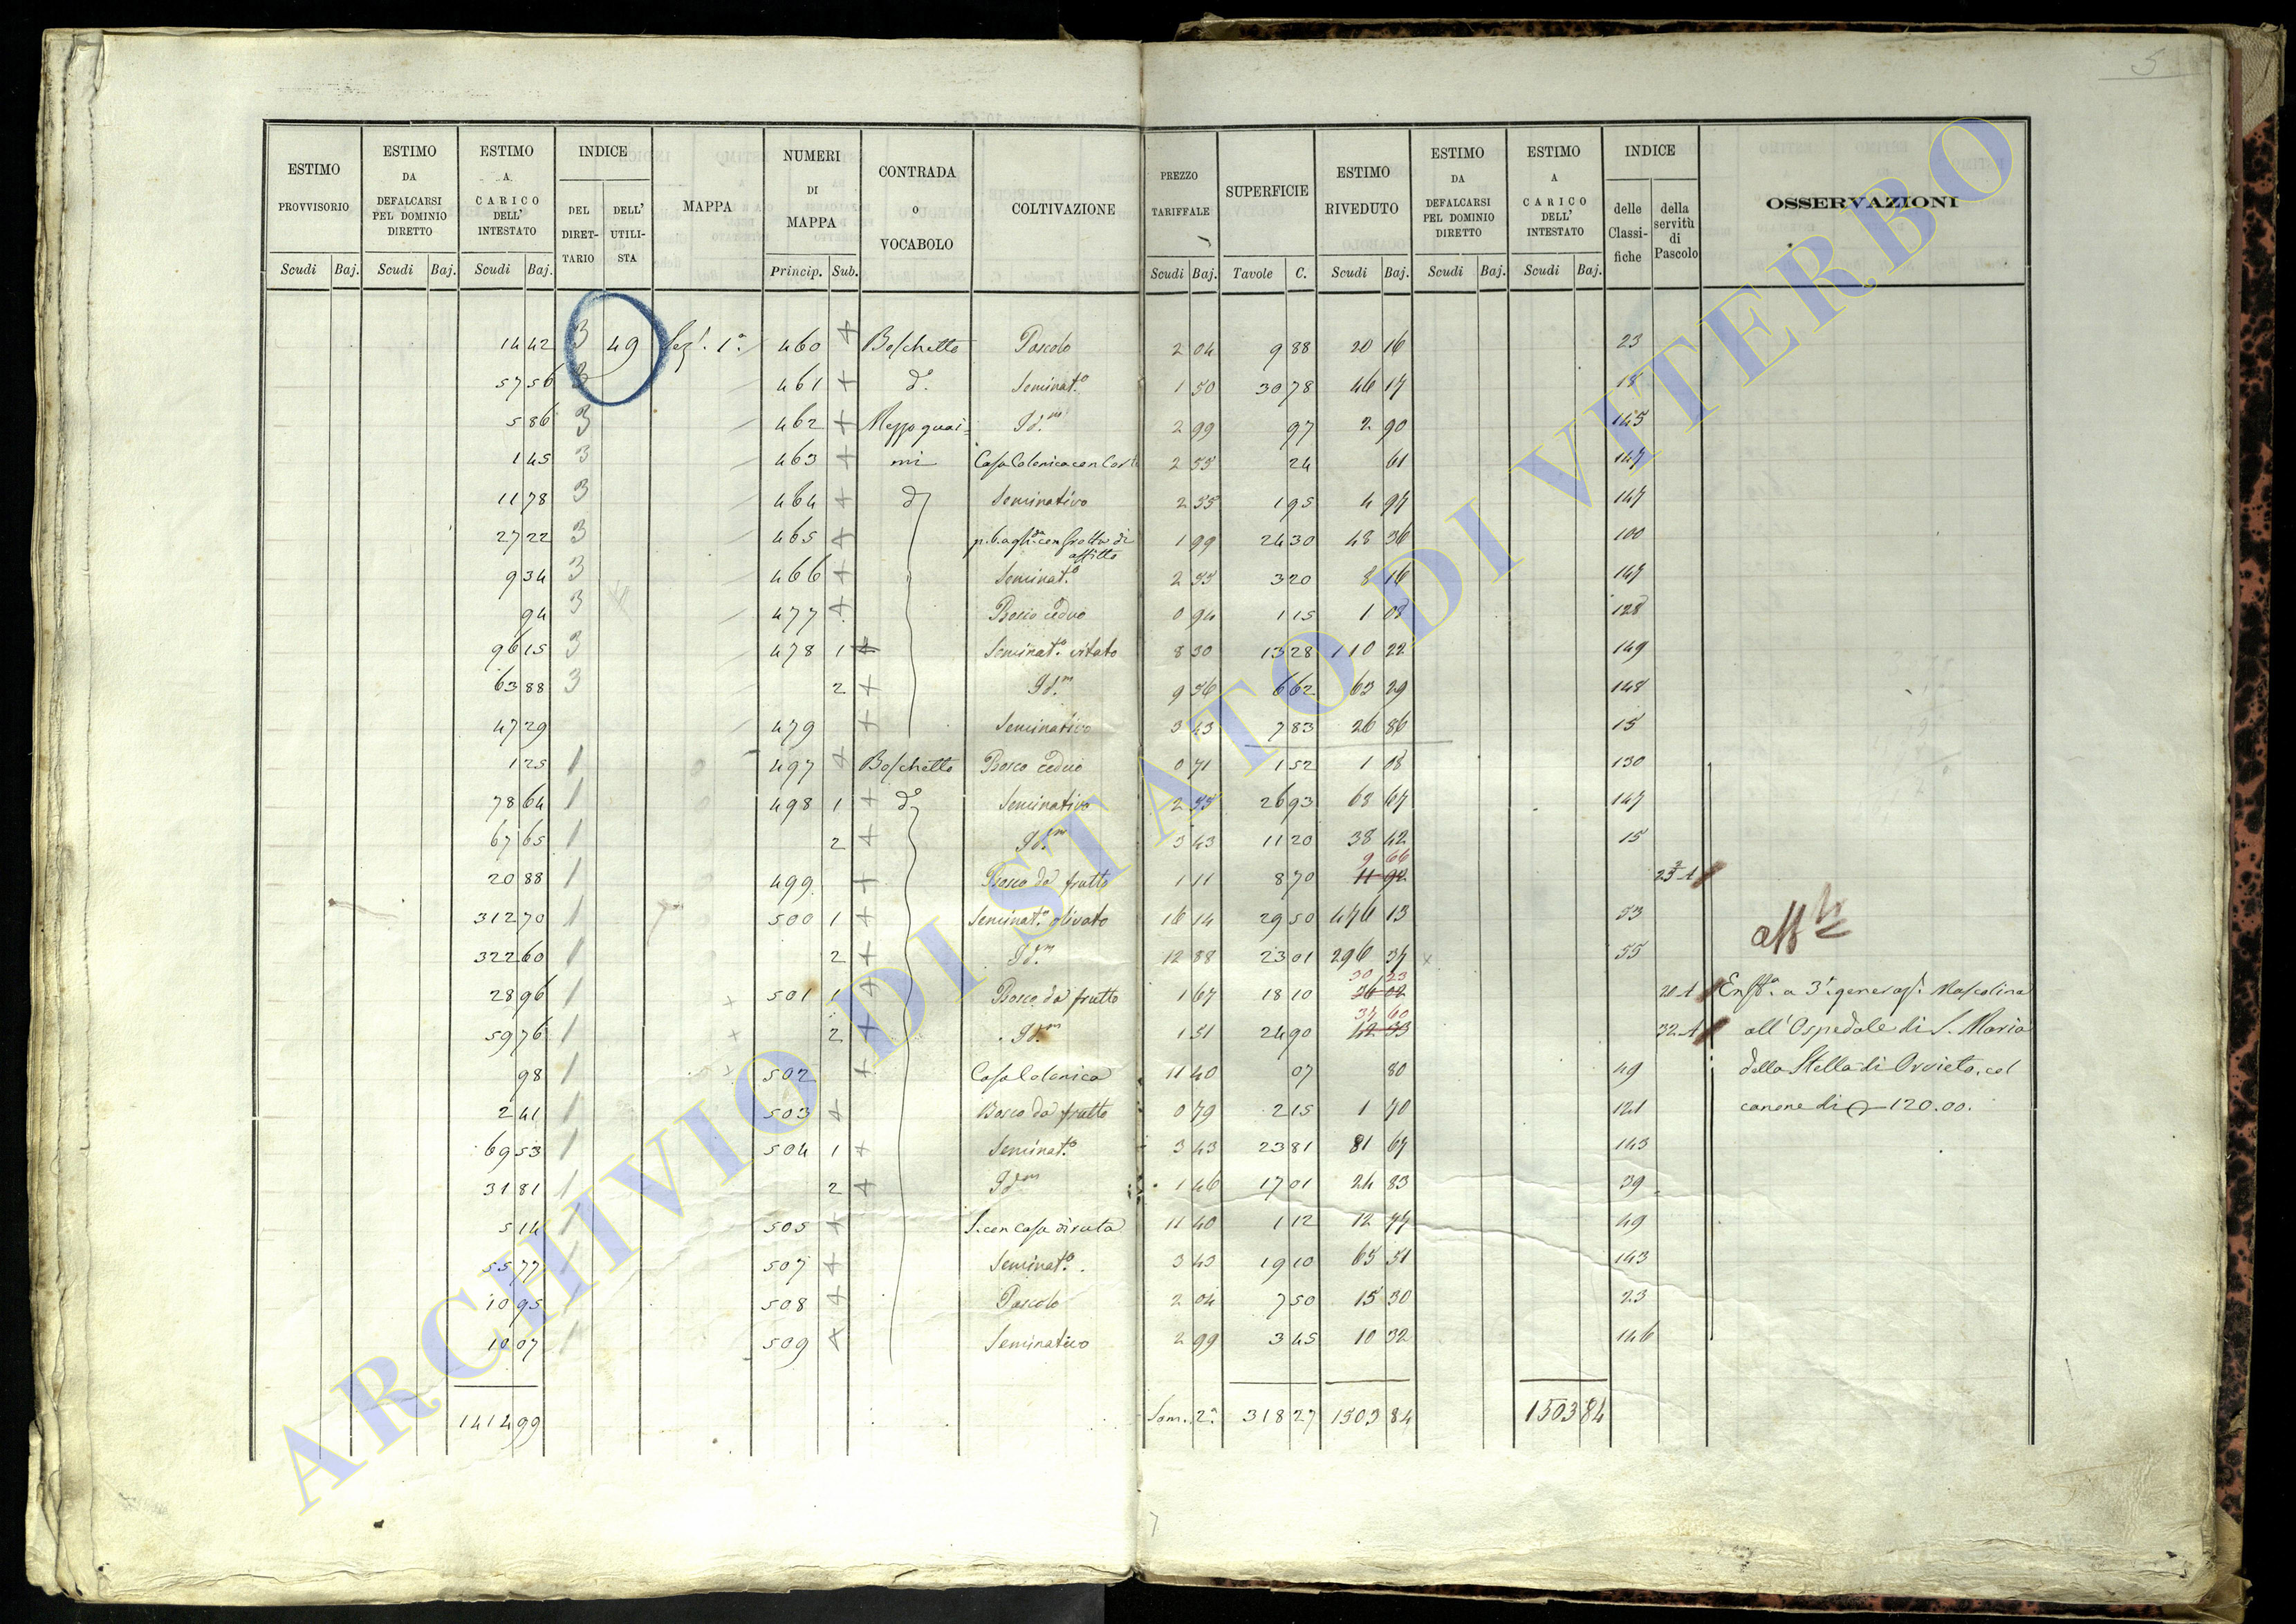 5
ESTIMO PROVVISORIO | ESTIMO DA DEFALCARSI PEL DOMINIO DIRETTO | ESTIMO A CARICO DELL' INTESTATO | INDICE DEL DIRETTARIO | DELL' UTILISTA | MAPPA | NUMERI DI MAPPA | CONTRADA O VOCABOLO | COLTIVAZIONE | PREZZO TARIFFALE | SUPERFICIE | ESTIMO RIVEDUTO | ESTIMO DA DEFALCARSI PEL DOMINIO DIRETTO | ESTIMO A CARICO DELL' INTESTATO | INDICE delle Classifiche | della servitù di Pascolo | OSSERVAZIONI
Scudi Baj. | Scudi Baj. | Scudi Baj. | Princip. Sub. | Scudi Baj. | Tavole C. | Scudi Baj. | Scudi Baj. | Scudi Baj.
14 42 3 49 Sez. 1a 460 + Boschetto Pascolo 2 04 9 88 20 16 23
57 56 3 461 + do. Seminato. 1 50 30 78 46 17 18
5 86 3 462 + Mezzoguai= Idm 2 99 97 2 90 145
1 45 3 463 + mi Casa Colonica con Corte 2 55 24 61 147
11 78 3 464 + d Seminativo 2 55 1 95 4 97 147
27 22 3 465 + con Grotta di affitto 1 99 24 30 48 36 100
9 34 3 466 + Seminato. 2 55 3 20 8 16 147
94 3 477 + Bosco ceduo 0 94 1 15 1 08 128
96 15 3 478 1 + Seminato. vitato 8 30 13 28 110 22 149
63 88 3 2 + Idm 9 56 6 62 63 29 148
47 29 479 + Seminativo 3 43 7 83 26 86 15
1 25 1 497 + Boschetto Bosco ceduo 0 71 1 52 1 08 130
78 64 1 498 1 + do Seminativo 2 55 26 93 68 67 147
67 65 1 2 + Idm 3 43 11 20 38 42 15
9 66
20 88 1 499 + Bosco da frutto 1 11 8 70 23 1
312 70 1 500 1 + Seminato. olivato 16 14 29 50 476 13 53
322 60 1 2 + Idm 12 88 23 01 296 37 x 55
30 23
28 96 1 501 1 + Bosco da frutto 1 67 18 10 26 02 20 1 Enfta. a 3a. generaz. Mascolina
37 60
59 76 1 2 + Idm 1 51 24 90 42 33 32 1 all'Ospedale di S. Maria
98 1 502 + Casa Colonica 11 40 07 80 49 della Stella di Orvieto, col
2 41 1 503 + Bosco da frutto 0 79 2 15 1 70 121 canone di 120.00.
69 53 1 504 1 + Seminato. 3 43 23 81 81 67 143
31 81 1 2 + Idm 1 46 17 01 24 83 39
5 14 1 505 + S. con Casa diruta 11 40 1 12 12 77 49
55 77 1 507 + Seminato. 3 43 19 10 65 51 143
10 95 1 508 + Pascolo 2 04 7 50 15 30 23
10 07 1 509 + Seminativo 2 99 3 45 10 32 146
1414 99 Som. 2a 318 27 1503 84 1503 84
ARCHIVIO DI STATO DI VITERBO